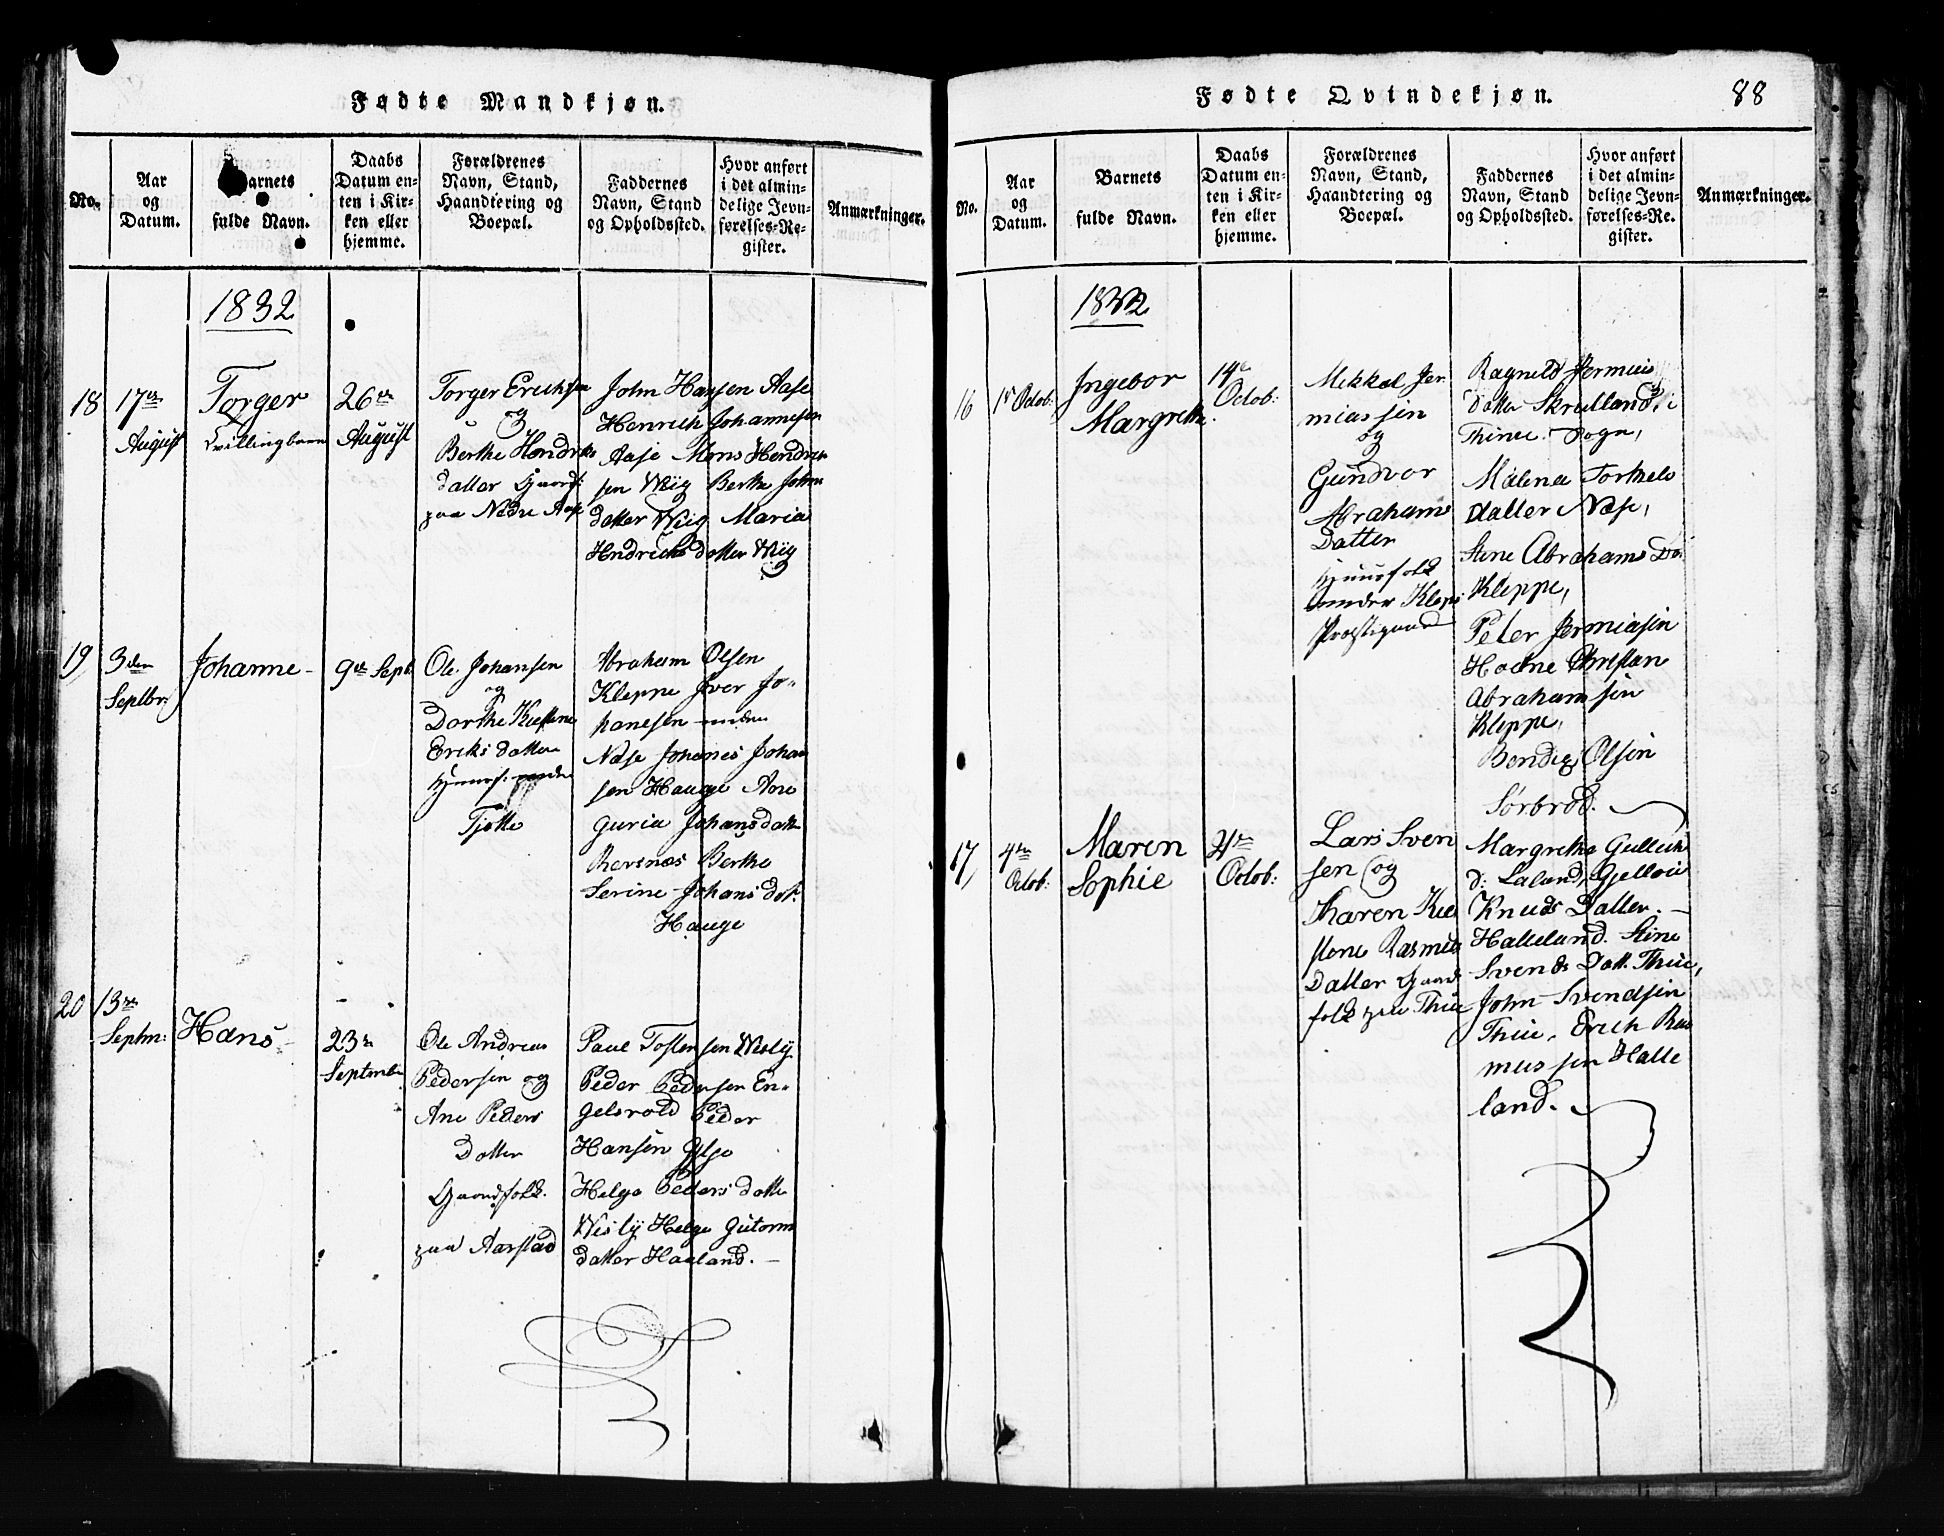 Fødte Mandkjøn.
No.
Aar
og
Datum.
Barnets
fulde Navn.
Daabs
Datum en-
ten i Kir-
ken eller
hjemme.
Forældrenes
Navn, Stand,
Haandtering og
Boepæl.
Faddernes
Navn, Stand
og Opholdssted.
Hvor anført
i det almin-
delige Jevn-
førelses-Re-
gister.
Anmærkninger.
1832
18
17de
August
Torger
Tvillingbarn
26de
August
Torger Erichsen
og
Berthe Hendriks
datter Gaardf:
paa Nedre Aase
John Hansen Aase
Henrich Johannesen
Aase Mons Hendrik
sen Wiig Berthe John
datter Wiig Maria
Hndrichsdatter Wiig
19)
3den
Septbr:
Johanne-
9de Septb
Ole Johansen
og
Dorthe Kirstine
Eriks datter
Huusf: under
Tjøtte
Abraham Olsen
Kleppe Iver Jo-
hanesen under
Nase Johanes Johan
sen Hauge Ane
Guria Johansdatter
Revsnæs Berthe
Serine Johansdat.
Hauge
20
13de
Septm:
Hans
23de
Septmber
Ole Andreas
Pedersen og
Ane Peders
Datter
Gaardfolk.
paa Aarstad
Paul Tosten sen Wisty.
Peder Pedersen En-
gelsvold Peder
Hansen
Helge Peders datter
Wisty Helge Gutorm
datter Haaland.
Fødte Qvindekjøn.
88
No.
Aar
og
Datum.
Barnets
fulde Navn.
Daabs
Datum en-
ten i Kir-
ken eller
hjemme.
Forældrenes
Navn, Stand,
Haandtering og
Boepæl.
Faddernes
Navn, Stand
og Opholdssted.
Hvor anført
i det almin-
delige Jevn-
førelses-Re-
gister.
Anmærkninger.
1832
16
1ste Octob:
Ingebor
Margrethe
14de
Octob:
Mikkel Jer
miassen
og
Gundvor
Abrahams
Datter
Huusfolk
under Klep
Præstigaard
Ragnild Jermias
datter Skrulland, i
Thime Sogn,
Malena Torkels
datter Nase,
Stine Abrahams Da
Kleppe,
Peter Jermiasin
Hodne Christan
Abrahamsin
Kleppe,
Bendig Olsen
Sørbrød.
17)
4de
Octob:
Maren
Sophie
21de
Octob:
Lars Sven
sen og
Karen Kir
stene Rasmus
Datter Gaard
folk paa Thue
Margrethe Gullich
d: Laland,
Knuds Datter.-
Halleland. Stine
Svends Datt. Thue,
John Svendsin
Thue, Erich Ras
mussen Halle
land.